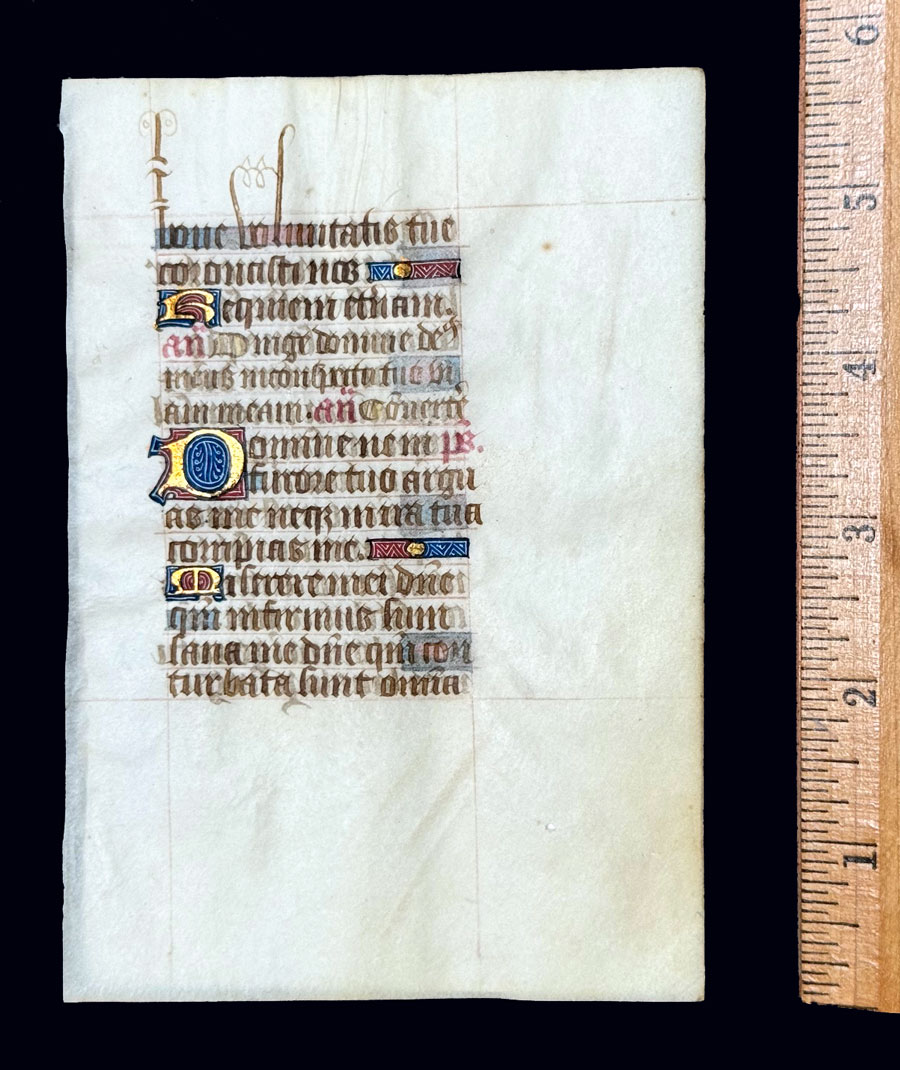 bone voluntatis tue
coronasti nos
Requiem eternam.
añ Dirige domine de⁹
meus in conspectu tuo vi
am meam. añ Converte
Domine ne in ps.
furore tuo argu
as me neqꝫ in ira tua
corripias me.
Miserere mei dñe
qm̃ infirmus sum
sana me dñe qm̃ con
turbata sunt omnia
6
5
4
3
2
1